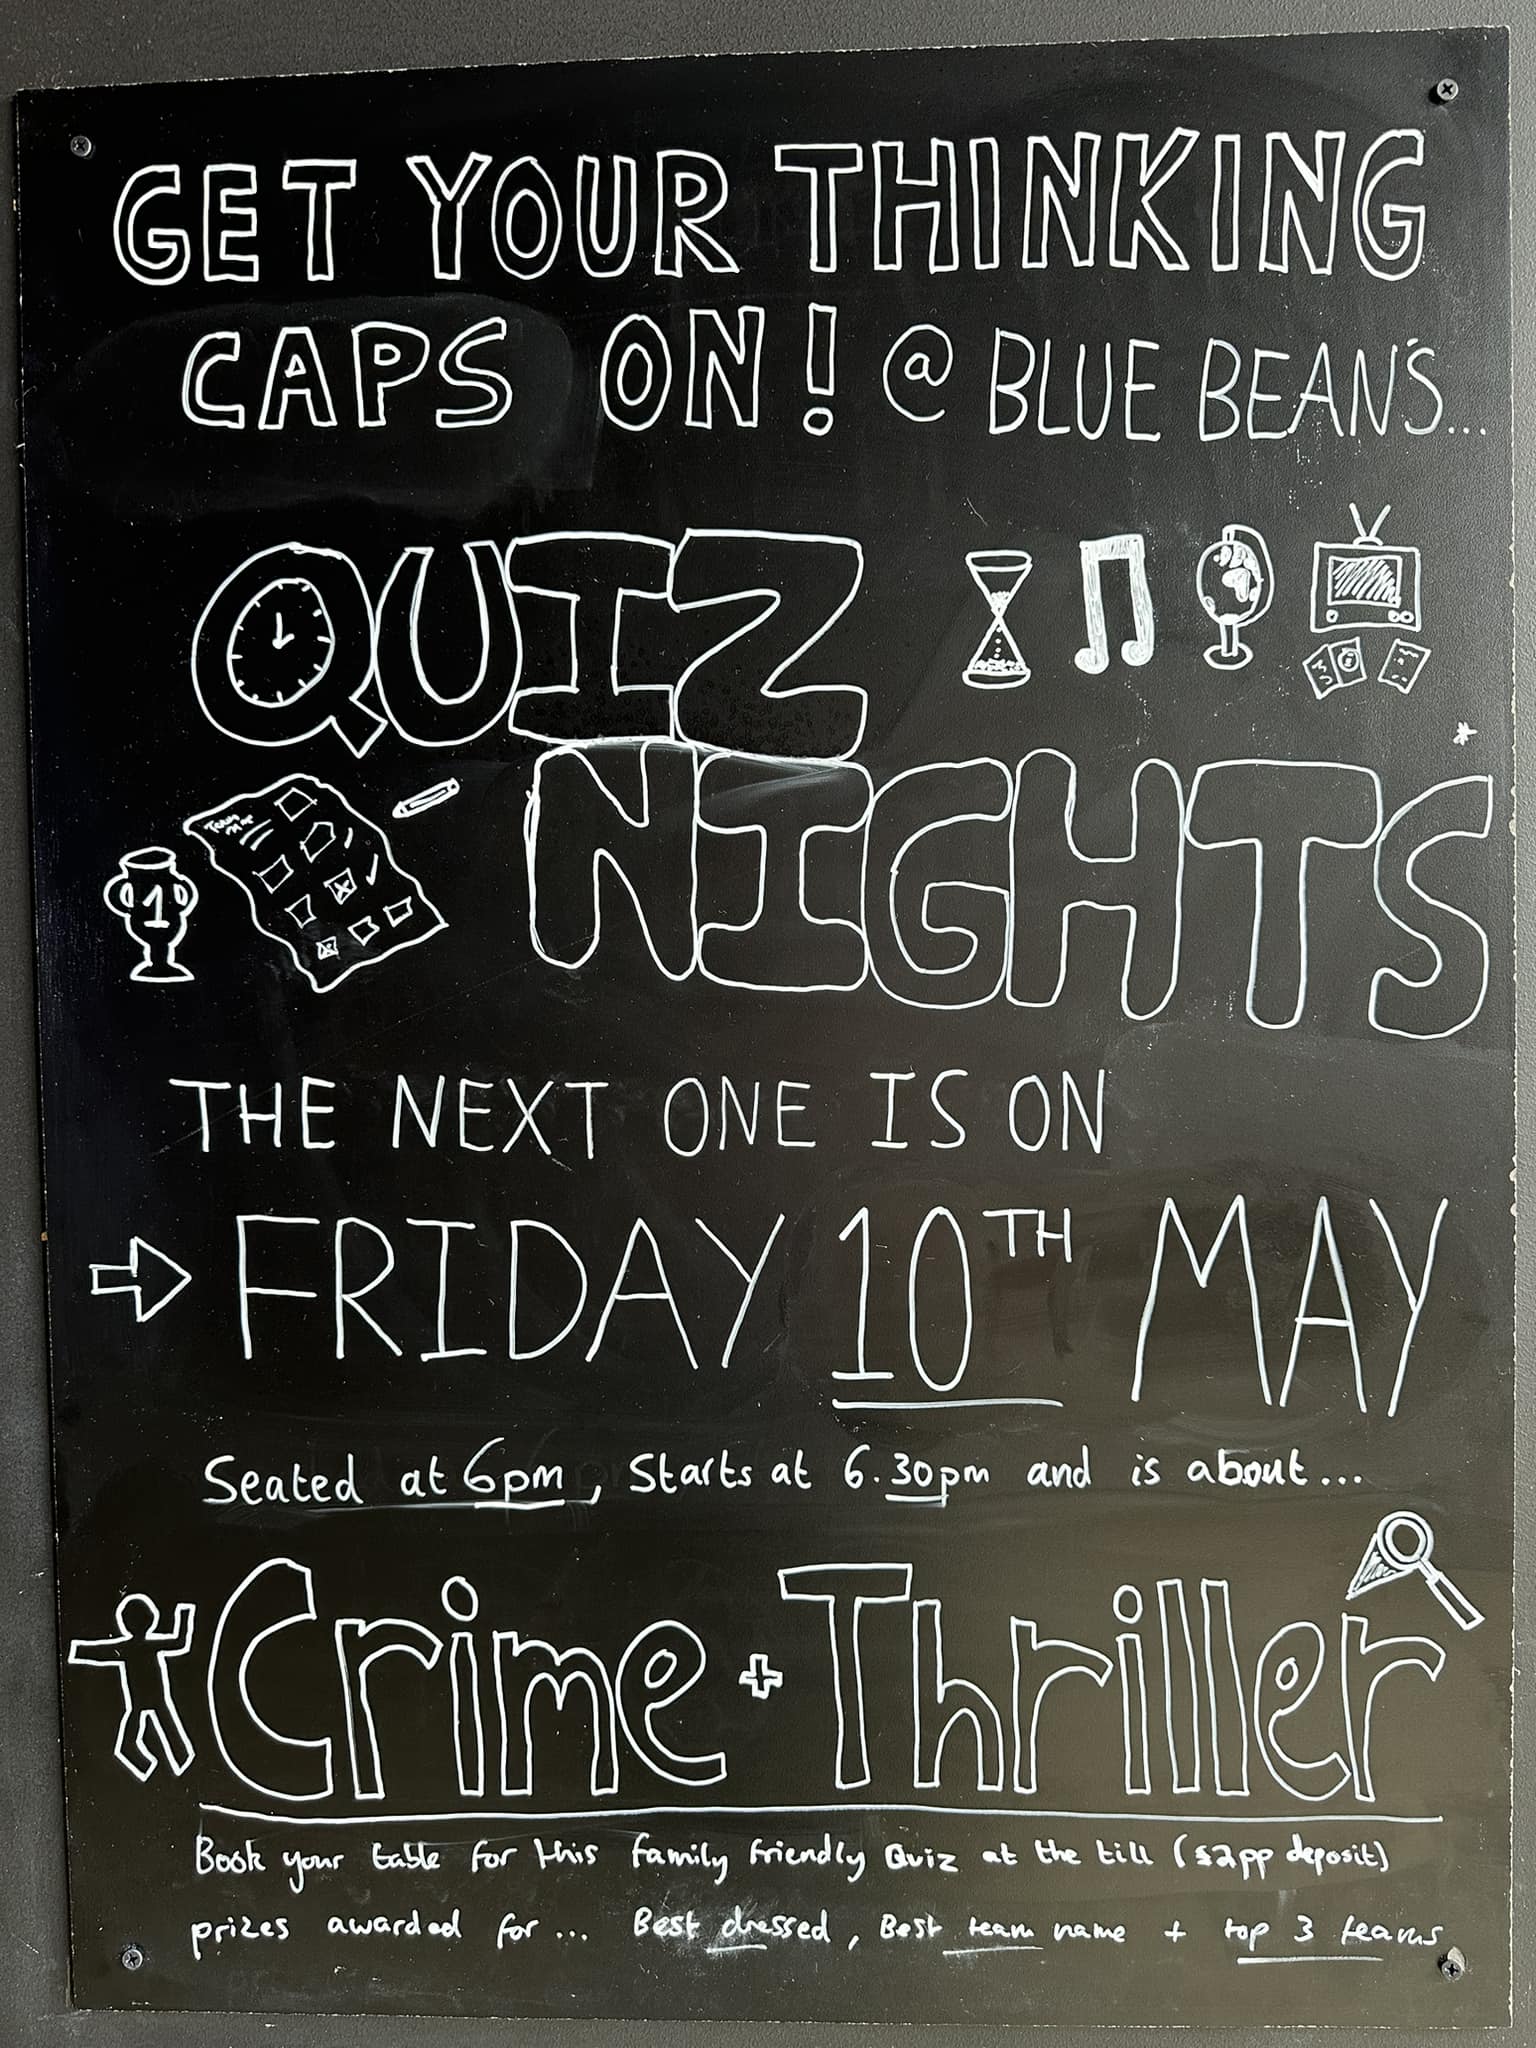 GET YOUR THINKING
CAPS ON! @ BLUE BEAN'S...
QUIZ
NIGHTS
1
THE NEXT ONE IS ON
FRIDAY 10TH MAY
Seated at 6pm, Starts at 6.30pm and is about...
Crime + Thriller
Book your table for this family friendly Quiz at the till (£2pp deposit)
prizes awarded for... Best dressed, Best team name + top 3 teams